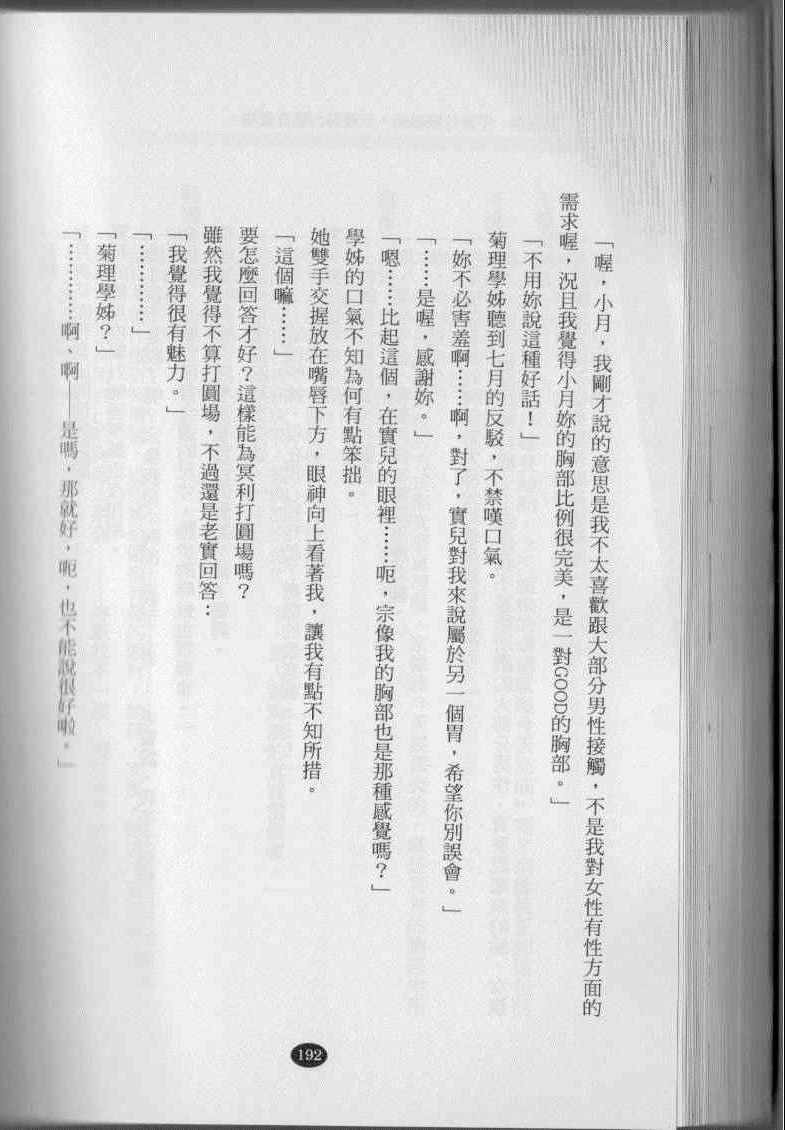 「喔，小月，我剛才說的意思是我不太喜歡跟大部分男性接觸，不是我對女性有性方面的
需求喔，況且我覺得小月妳的胸部比例很完美，是一對GOOD的胸部。」
「不用妳說這種好話！」
菊理學姊聽到七月的反駁，不禁嘆口氣。
「妳不必害羞啊……啊，對了，實兒對我來說屬於另一個胃，希望你別誤會。」
「……是喔，感謝妳。」
「嗯……比起這個，在實兒的眼裡……呃，宗像我的胸部也是那種感覺嗎？」
學姊的口氣不知為何有點笨拙。
她雙手交握放在嘴唇下方，眼神向上看著我，讓我有點不知所措。
「這個嘛……」
要怎麼回答才好？這樣能為冥利打圓場嗎？
雖然我覺得不算打圓場，不過還是老實回答：
「我覺得很有魅力。」
「…………」
「菊理學姊？」
「…………啊、啊——是嗎，那就好，呃，也不能說很好啦。」
192